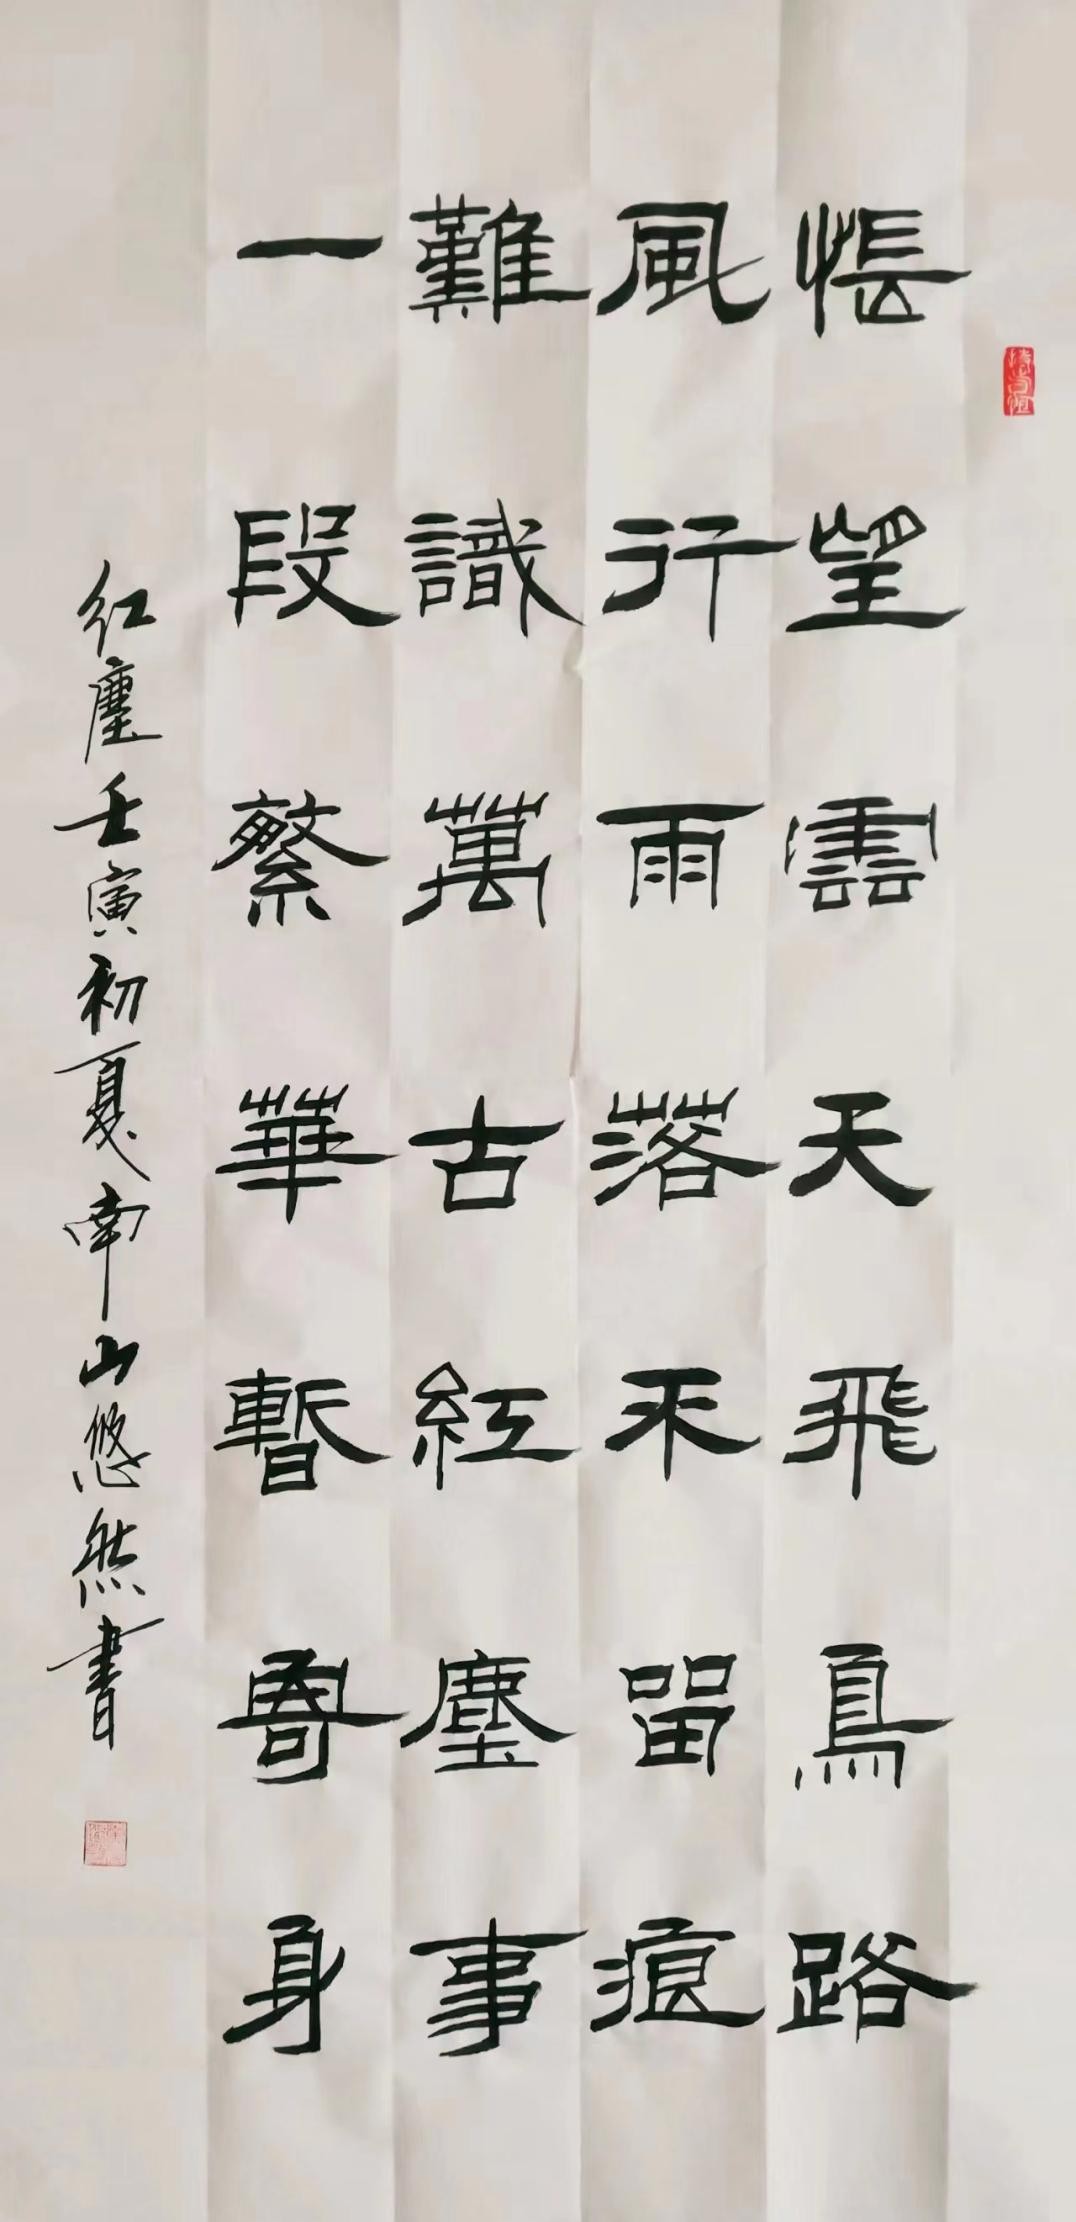 悵望雲天飛鳥路
風行雨落不留痕
難識萬古紅塵事
一段繁華暫寄身
紅塵壬寅初夏南山悠然書
持有恒